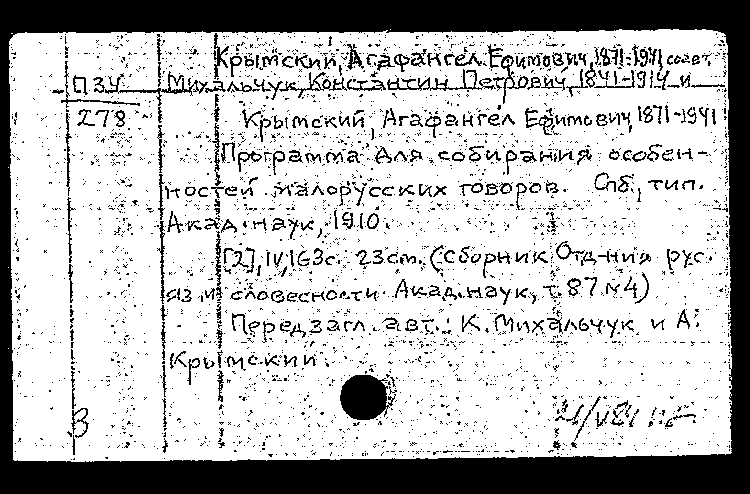 Крымский, Агафангел Ефимович, 1871-1941, соавт.
ПЗУ Михальчук, Константин Петрович, 1841-1914 и
278 Крымский, Агафангел Ефимович, 1871-1941
Программа для собирания особен-
ностей малорусских говоров. Спб., тип.
Акад. наук, 1910.
[2], IV, 163с. 23см. (Сборник Отд-ния рус.
яз. и словесности Акад. наук, т. 87 № 4)
Перед загл. авт.: К. Михальчук и А.
Крымский.
В